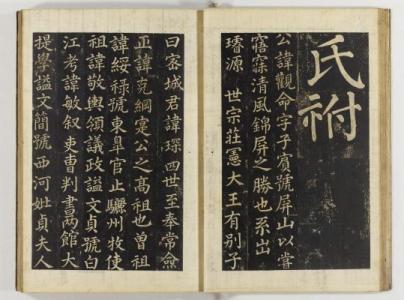 氏祔
公諱觀命字子賓號屏山以嘗
寤寐清風錦屏之勝也系出
璿源 世宗莊憲大王有別子
曰密城君諱琛四世至奉常僉
正諱克綱寔公之高祖也曾祖
諱綏祿號東皐官止驪州牧使
祖諱敬輿領議政謚文貞號白
江考諱敏叙吏曹判書兩館大
提學謚文簡號西河妣貞夫人